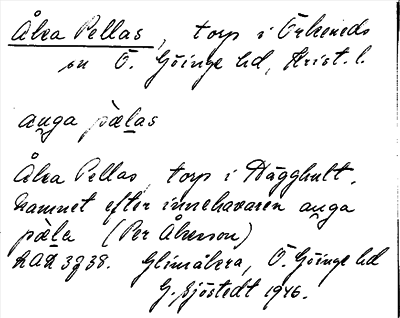 Åka Pellas, torp i Örkeneds
sn Ö. Göinge hd, Krist. l.
auga pælas
Åka Pellas, torp i Hägghult.
Namnet efter innehavaren auga
pæla (Per Åkesson)
RAÄ 3938. Glimåkra, Ö. Göinge hd
G. Sjöstedt 1946.